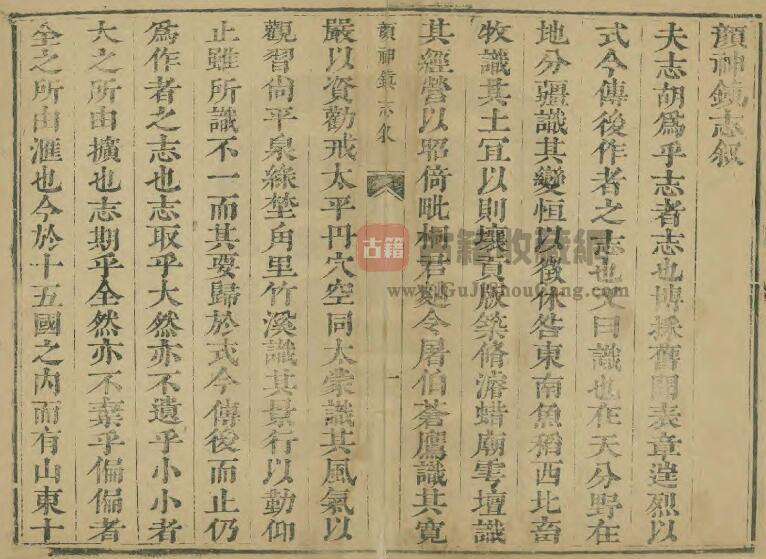 顏神鎮志叙
夫志胡為乎志者志也博採舊聞表章逹烈以
式今傳後作者之志也又曰識也在天分野在
地分疆識其變恒以徵休咎東南魚稻西北畜
牧識其土宜以則壤貢版築脩濬蜡廟雩壇識
其經營以昭倚毗桐君令屠伯蒼鷹識其寬
顏神鎮志叙
一
嚴以資勸戒太平丹穴空同太蒙識其風氣以
觀習尚平泉綠埜角里竹溪識其景行以勤仰
止雖所識不一而其要歸於式今傳後而止仍
為作者之志也志取乎大然亦不遺乎小小者
大之所由擴也志期乎全然亦不棄乎偏偏者
全之所由滙也今於十五國之内而有山東十
古籍
古籍收藏網
www.GuJiShouCang.com